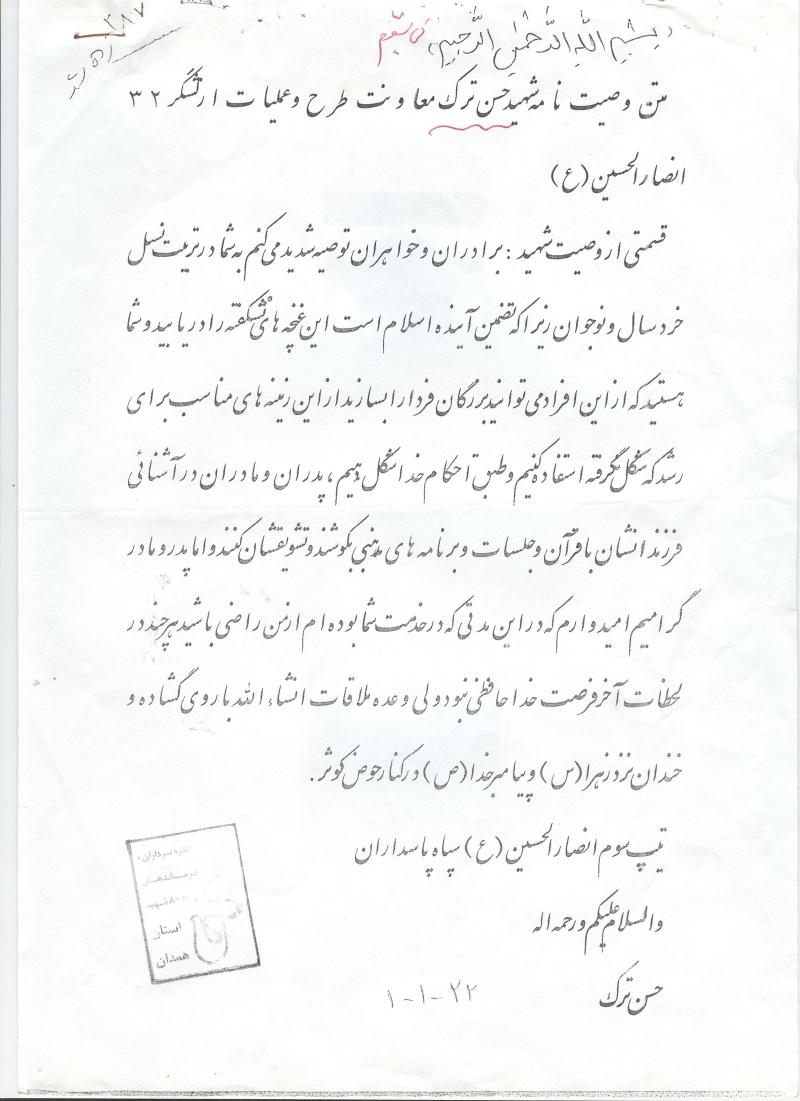 ۳۸۷
بسم الله الرحمن الرحیم
متن وصیت نامه شهید حسن ترک معاونت طرح و عملیات ارتشگر ۳۲
انصارالحسین (ع)
قسمتی از وصیت شهید : برادران و خواهران توصیه شدید می کنم به شما در تربیت نسل
خردسال و نوجوان زیرا که تضمین آینده اسلام است این غنچه های نشکفته را دریابید و شما
هستید که از این افراد می توانید بزرگان فردا را بسازید از این زمینه های مناسب برای
رشد که شکل نگرفته استفاده کنیم و طبق احکام خدا شکل دهیم ، پدران و مادران در آشنائی
فرزندانشان با قرآن و جلسات و برنامه های مذهبی بکوشند و تشویقشان کنند و اما پدر و مادر
گرامیم امیدوارم که در این مدتی که در خدمت شما بوده ام از من راضی باشید هرچند در
لحظات آخر فرصت خداحافظی نبود ولی وعده ملاقات انشاء الله با روی گشاده و
خندان نزد زهرا (س) و پیامبر خدا (ص) در کنار حوض کوثر .
تیپ سوم انصارالحسین (ع) سپاه پاسداران
والسلام علیکم و رحمه اله
حسن ترک
۲۲-۱-۱
کنگره سرداران
۸۰۰۰ شهید
استان
همدان